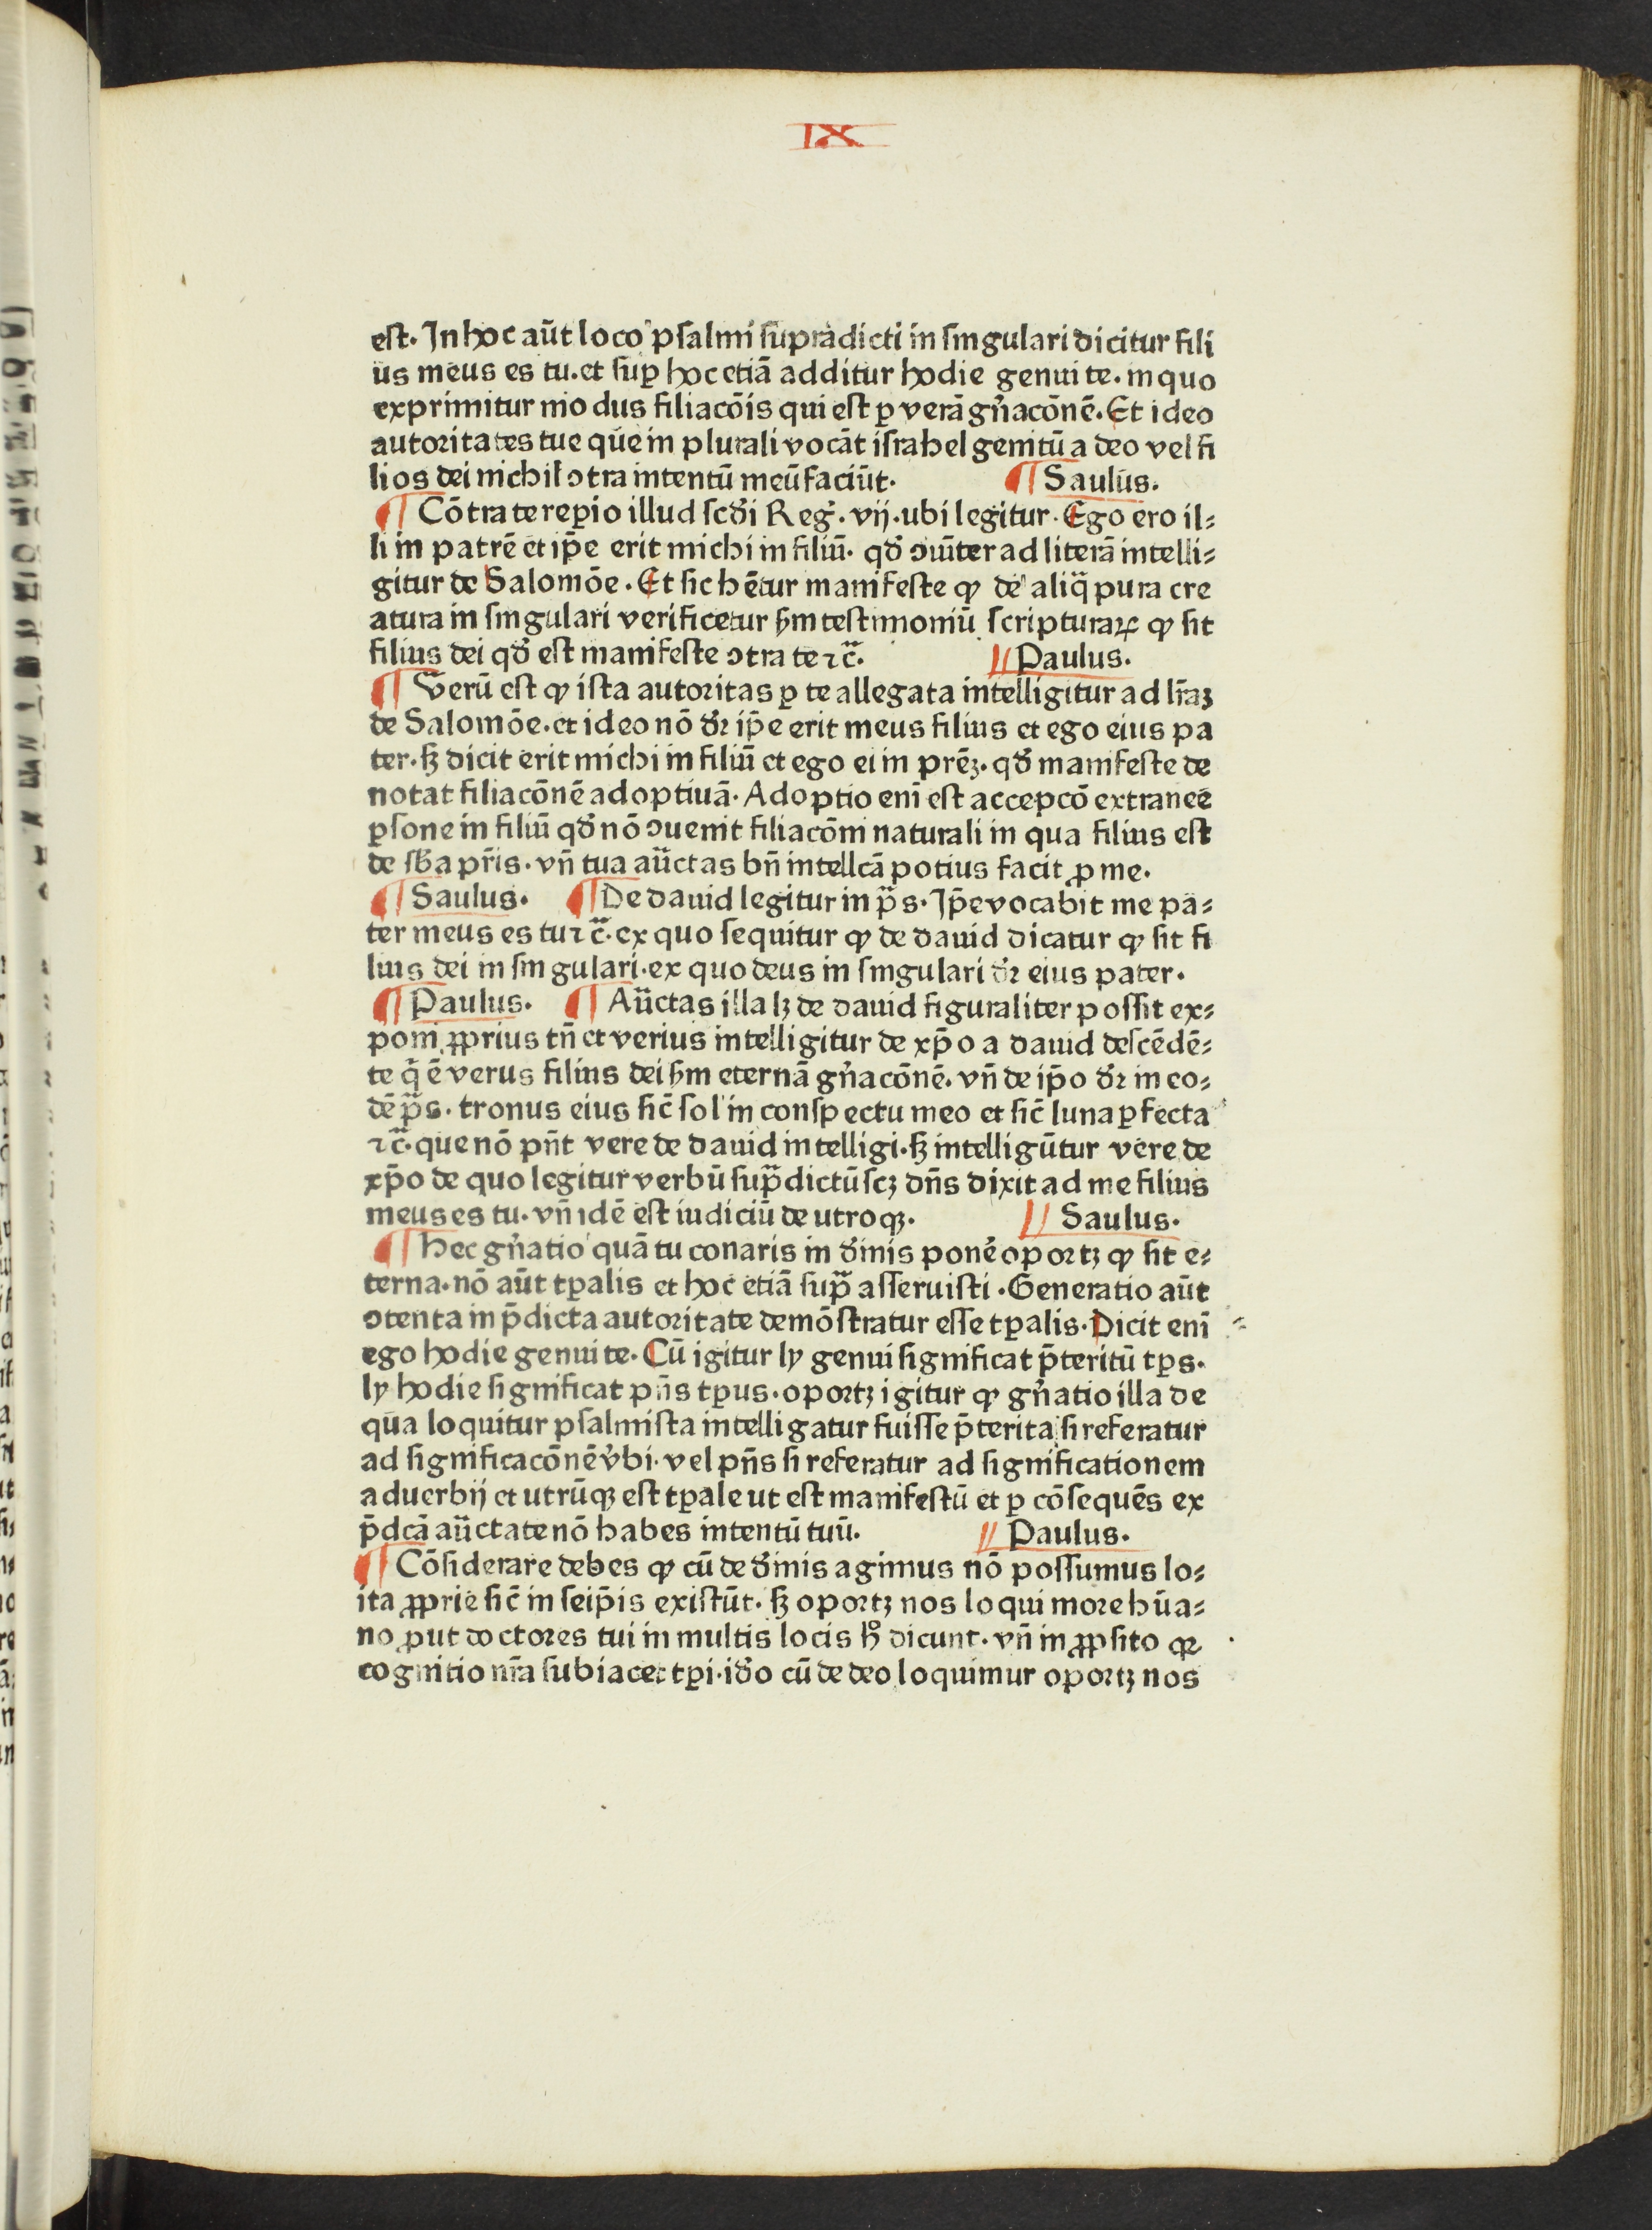 IX
est. In hoc aūt loco psalmi supradicti in singulari dicitur fili
us meus es tu. et sup̱ hoc etiā additur hodie genui te. in quo
exprimitur modus filiacōis qui est ꝑ verā gn̄acōnē. Et ideo
autoritates tue que in plurali vocāt israhel genitū a deo vel fi
lios dei nichil ꝯtra intentū meū faciūt. ¶ Saulus.
¶ Cōtra te reꝑio illud scd̄i Reḡ. vij. ubi legitur. Ego ero il⸗
li in patrē et ip̄e erit michi in filiū. qd̄ ꝯiūter ad literā intelli⸗
gitur de Salomōe. Et sic hētur manifeste ꝙ de aliq̄ pura cre
atura in singulari verificetur ẜm testimoniū scripturaꝝ ꝙ sit
filius dei qd̄ est manifeste ꝯtra te ⁊c̄. // Paulus.
¶ Verū est ꝙ ista autoritas ꝑ te allegata intelligitur ad lr̄aꝫ
de Salomōe. et ideo nō dr̄ ip̄e erit meus filius et ego eius pa
ter. sꝫ dicit erit michi in filiū et ego ei in pr̄eꝫ. qd̄ manifeste de
notat filiacōnē adoptiuā. Adoptio enī est accepcō extranee
ꝑsone in filiū qd̄ nō ꝯuenit filiacōni naturali in qua filius est
de sb̄a pr̄is. vn̄ tua aūctas bn̄ intellcā potius facit ꝓ me.
¶ Saulus. ¶ De dauid legitur in p̄s. Ip̄e vocabit me pa⸗
ter meus es tu ⁊c̄. ex quo sequitur ꝙ de dauid dicatur ꝙ sit fi
lius dei in singulari. ex quo deus in singulari dr̄ eius pater.
¶ Paulus. ¶ Aūctas illa lꝫ de dauid figuraliter possit ex⸗
poni ꝓprius tn̄ et verius intelligitur de xp̄o a dauid descēdē⸗
te q̄ ē verus filius dei ẜm eternā gn̄acōnē. vn̄ de ip̄o dr̄ in eo⸗
dē p̄s. tronus eius sic̄ sol in conspectu meo et sic̄ luna ꝑfecta
⁊c̄. que nō pn̄t vere de dauid intelligi. sꝫ intelligūtur vere de
xp̄o de quo legitur verbū sup̄dictū scꝫ dn̄s dixit ad me filius
meus es tu. vn̄ idē est iudiciū de utroqꝫ. // Saulus.
¶ Hec gn̄atio quā tu conaris in d̄inis pone᷑ oportꝫ ꝙ sit e⸗
terna. nō aūt tꝑalis et hoc etiā sup̄ asseruisti. Generatio aūt
ꝯtenta in p̄dicta autoritate demōstratur esse tꝑalis. Dicit enī
ego hodie genui te. Cū igitur ly genui significat p̄teritū tꝑs.
ly hodie significat pn̄s tꝑus. oportꝫ igitur ꝙ gn̄atio illa de
qua loquitur psalmista intelligatur fuisse p̄terita si referatur
ad significacōnē v̄bi. vel pn̄s si referatur ad significationem
aduerbij et utrūqꝫ est tꝑale ut est manifestū et ꝑ cōsequēs ex
p̄dcā aūctate nō habes intentū tuū. // Paulus.
¶ Cōsiderare debes ꝙ cū de d̄inis agimus nō possumus lo⸗
ita ꝓprie sic̄ in seip̄is existūt. sꝫ oportꝫ nos loqui more hūa⸗
no ꝓut doctores tui in multis locis hͦ dicunt. vn̄ in ꝓpsito qꝛ
cognitio nr̄a subiacet tꝑi. id̄o cū de deo loquimur oportꝫ nos